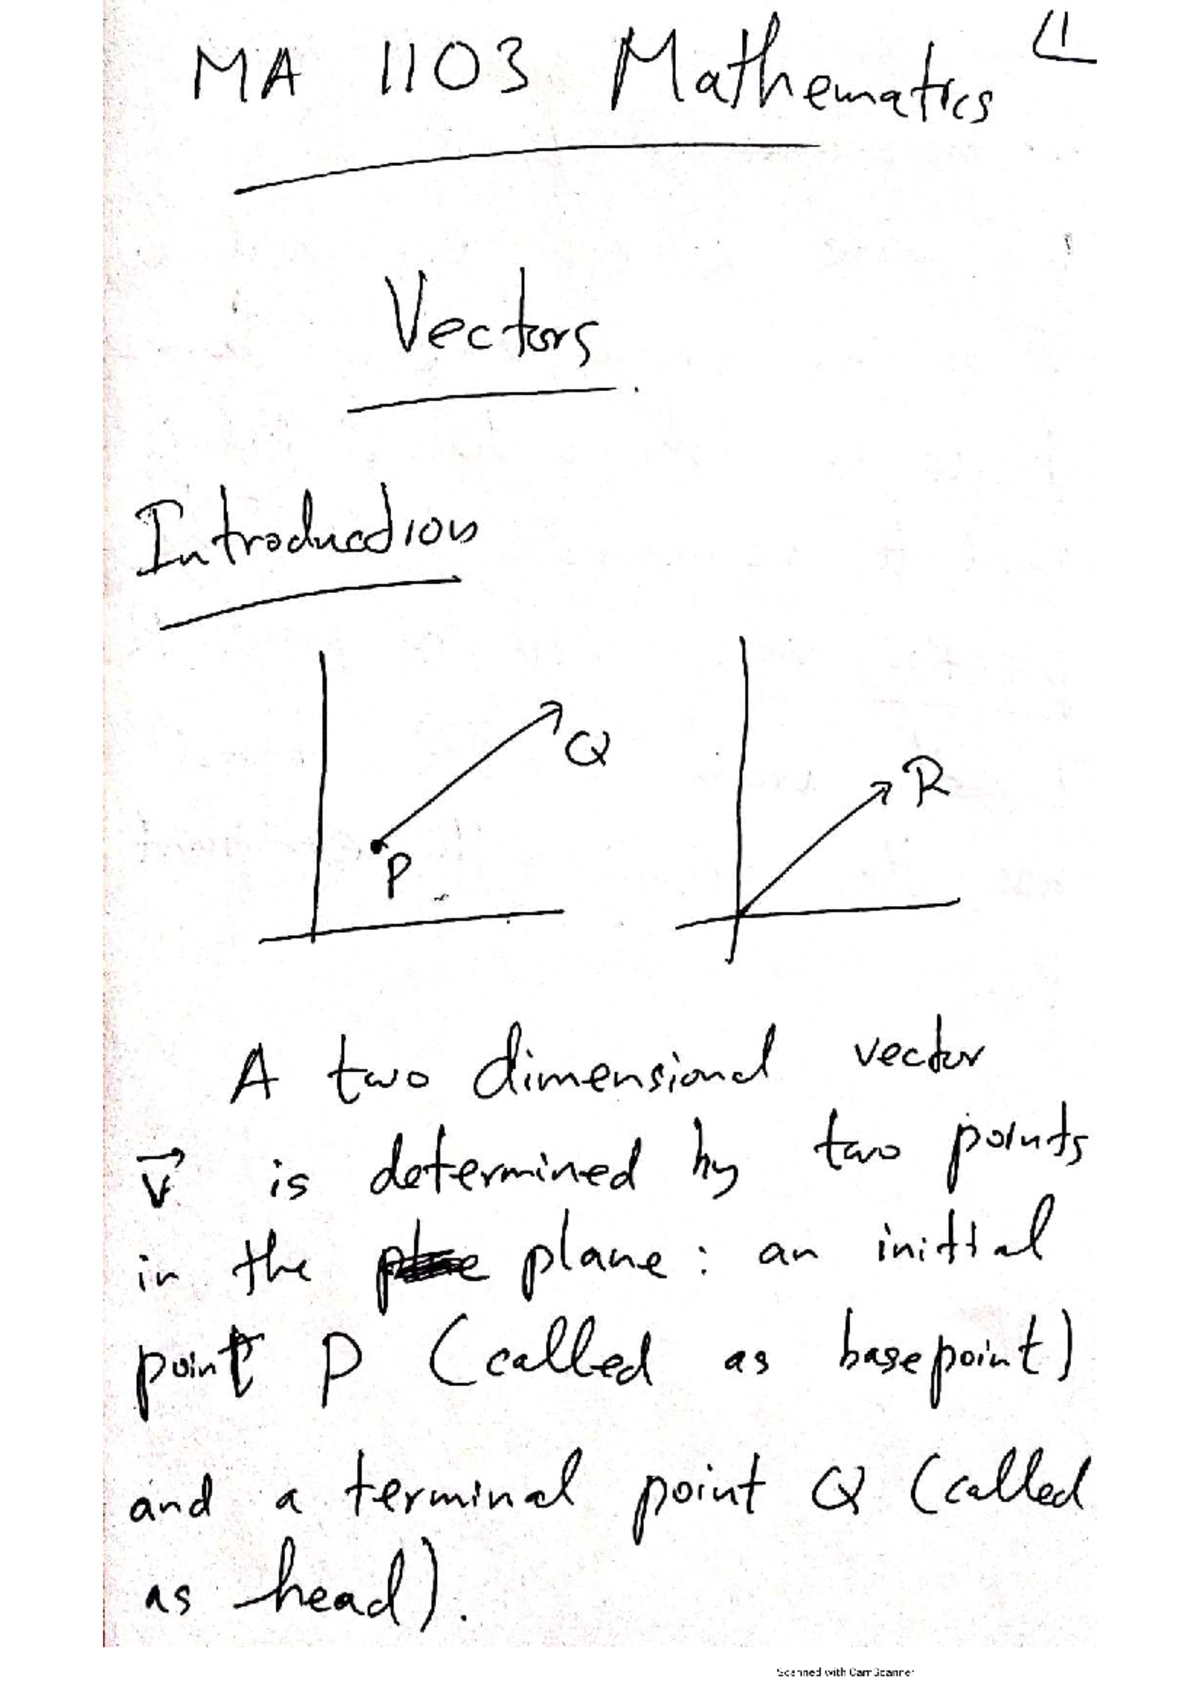 MA 1103 Mathematics
1
Vectors
Introduction
Q
P
R
A two dimensional vector
v⃗ is determined by two points
in the plane : an initial
point P (called as basepoint)
and a terminal point Q (called
as head).
Scanned with CamScanner